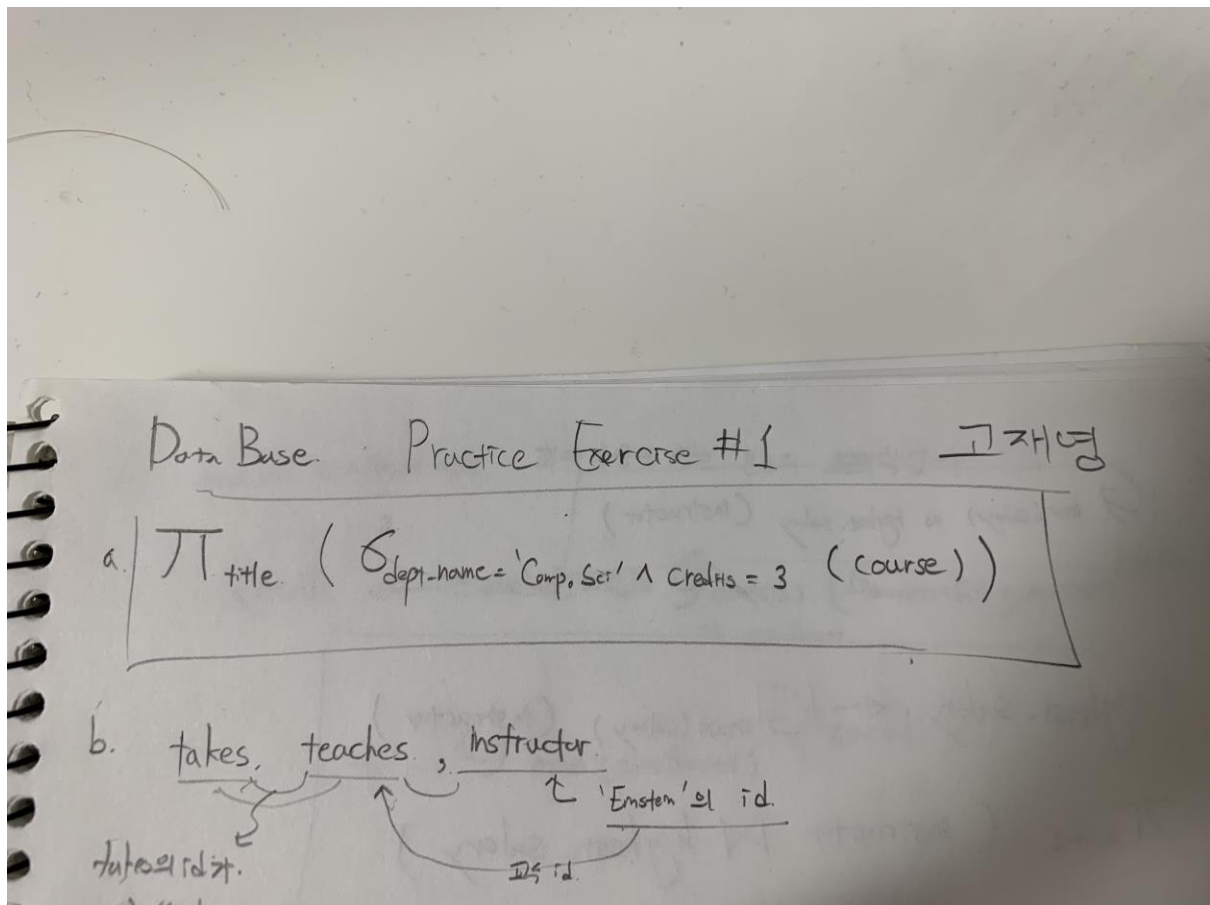 Data Base. Practice Exercise #1 고재영
a. π title ( σ dept-name = 'Comp. Sci' ∧ credits = 3 (course))
b. takes, teaches, instructor
'Einstein'의 id.
교수 id.
takes의 id가.